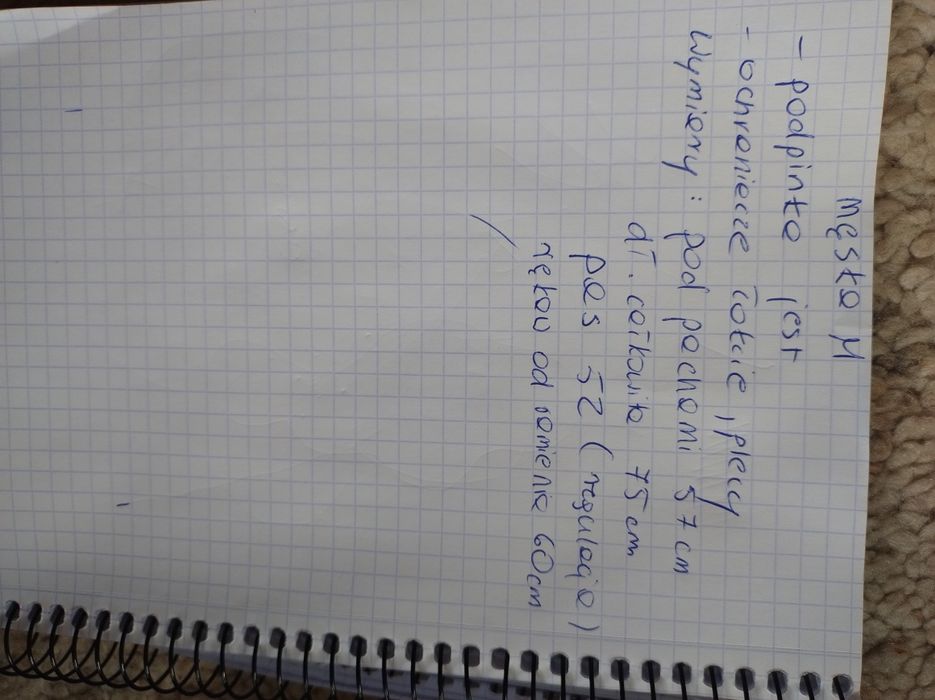 Męska M
- podpinka jest
- ochraniacze łokcie, plecy
Wymiary: pod pachami 57 cm
dł. całkowita 75 cm
pas 52 (regulacja)
rękaw od ramienia 60cm